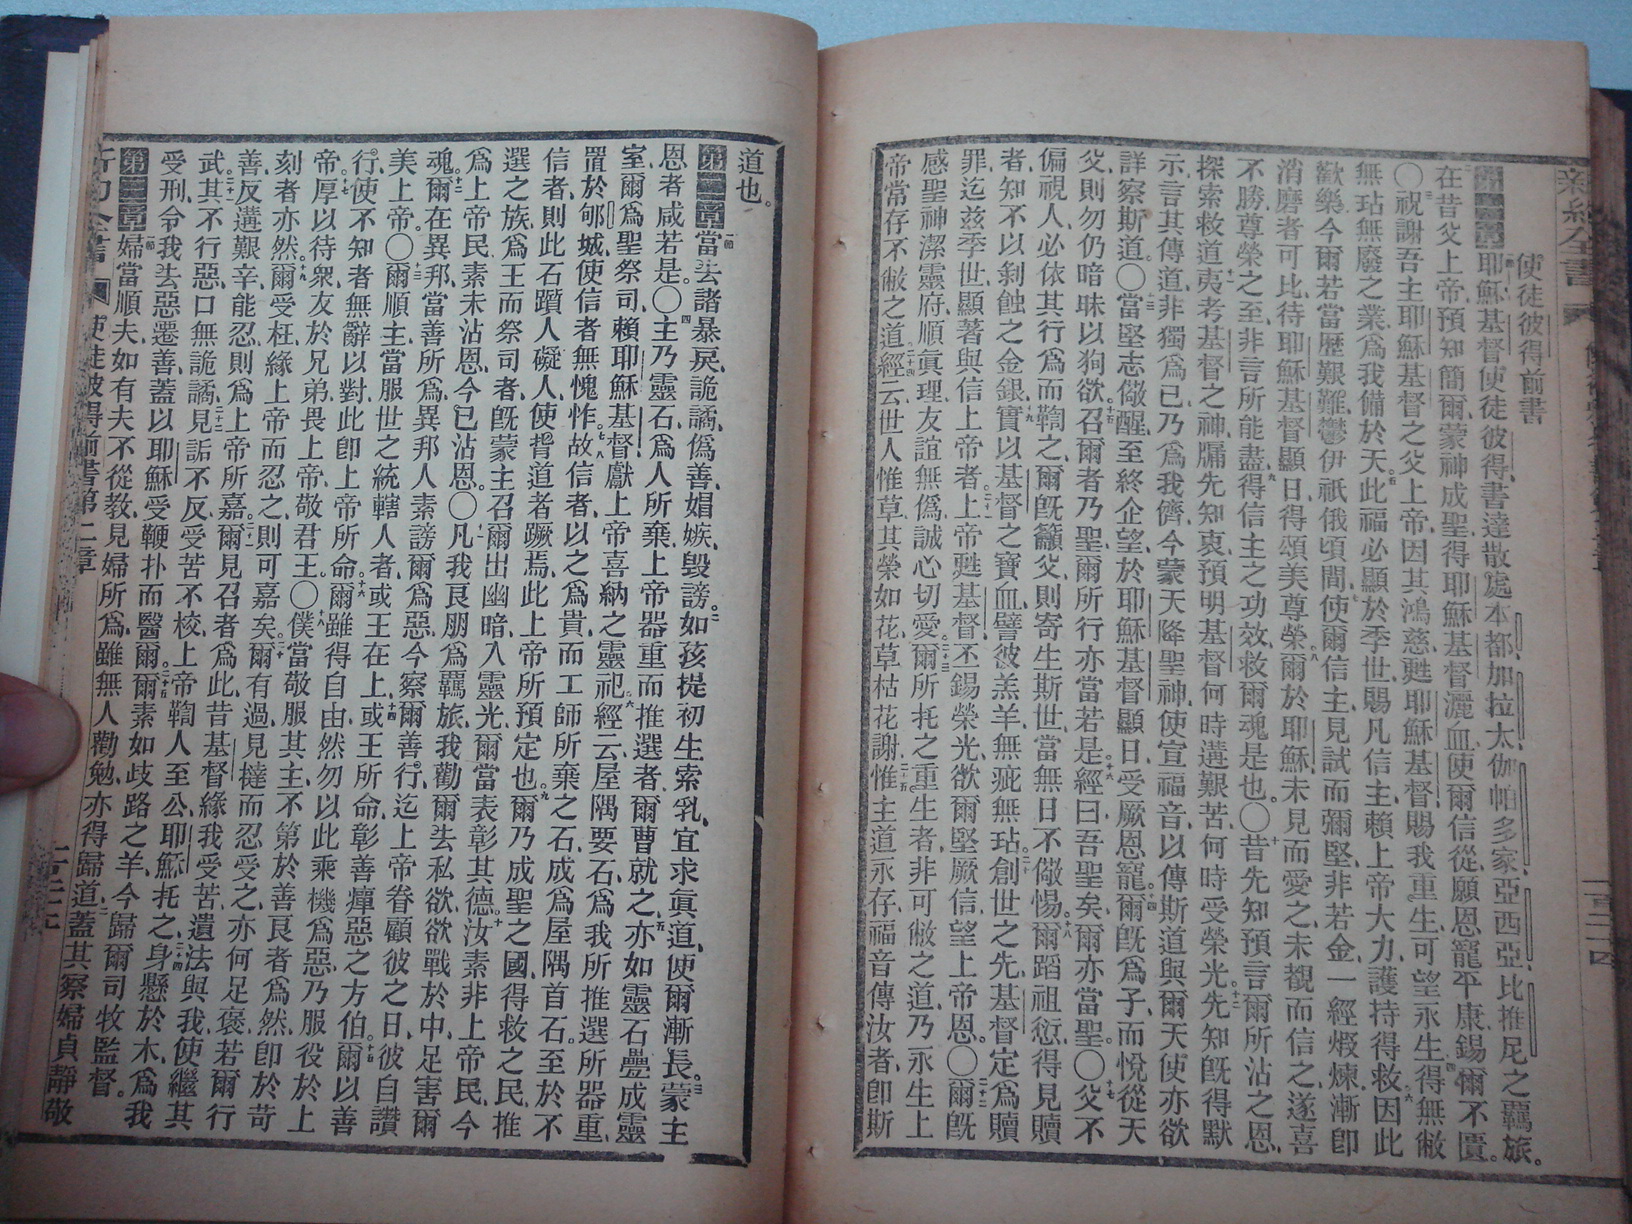 新約全書
使徒彼得前書
一百二十四
使徒彼得前書
第一章 耶穌基督使徒彼得、書達散處本都、加拉太、伽帕多家、亞西亞、比推尼之羇旅。
在昔父上帝、預知簡爾、蒙神成聖、得耶穌基督灑血、使爾信從、願恩寵平康、錫爾不匱。
〇祝謝吾主耶穌基督之父上帝、因其鴻慈、甦耶穌基督、賜我重生、可望永生、得無敝
無玷無廢之業、爲我備於天、此福必顯於季世、賜凡信主、賴上帝大力護持得救、因此
歡樂、今爾若當歷艱難、鬱伊祇俄頃間、使爾信主、見試而彌堅、非若金一經煅煉、漸卽
消磨者可比、待耶穌基督顯日、得頌美尊榮、爾於耶穌、未見而愛之、未覩而信之、遂喜
不勝、尊榮之至、非言所能盡、得信主之功效、救爾魂是也。〇昔先知預言爾所沾之恩、
探索救道、夷考基督之神、牖先知衷、預明基督何時遘艱苦、何時受榮光、先知旣得默
示、言其傳道、非獨爲已、乃爲我儕、今蒙天降聖神、使宣福音、以傳斯道與爾、天使亦欲
詳察斯道。〇當堅志儆醒、至終企望於耶穌基督顯日、受厥恩寵。爾旣爲子、而悅從天
父、則勿仍暗昧以狥欲、召爾者乃聖、爾所行亦當若是。經曰、吾聖矣、爾亦當聖。〇父不
偏視人、必依其行爲而鞫之、爾旣籲父、則寄生斯世、當無日不儆惕。爾蹈祖愆、得見贖
者、知不以剝蝕之金銀、實以基督之寶血、譬彼羔羊、無疵無玷、創世之先、基督定爲贖
罪、迄茲季世、顯著與信上帝者。上帝甦基督、丕錫榮光、欲爾堅厥信、望上帝恩。〇爾旣
感聖神、潔靈府、順眞理、友誼無僞、誠心切愛、爾所托之重生者、非可敝之道、乃永生上
帝常存不敝之道。經云、世人惟草、其榮如花、草枯花謝、惟主道永存、福音傳汝者、卽斯
道也。
第二章 當去諸暴戾、詭譎、僞善、媢嫉、毀謗。如孩提初生索乳、宜求眞道、使爾漸長。蒙主
恩者咸若是。〇主乃靈石、爲人所棄、上帝器重而推選者、爾曹就之、亦如靈石疊成靈
室、爾爲聖祭司、賴耶穌基督、獻上帝喜納之靈祀。經云、屋隅要石、爲我所推選所器重、
置於郇城、使信者無愧怍。故信者以之爲貴、而工師所棄之石、成爲屋隅首石。至於不
信者、則此石躓人礙人、使背道者蹶焉、此上帝所預定也。爾乃成聖之國、得救之民、推
選之族、爲王而祭司者、旣蒙主召爾出幽暗、入靈光、爾當表彰其德。汝素非上帝民、今
爲上帝民、素未沾恩、今已沾恩。〇凡我良朋爲羇旅、我勸爾去私欲、欲戰於中、足害爾
魂。爾在異邦、當善所爲、異邦人素謗爾爲惡、今察爾善行、迄上帝眷顧彼之日、彼自讚
美上帝。〇爾順主、當服世之統轄人者、或王在上、或王所命、彰善癉惡之方伯。爾以善
行、使不知者無辭以對、此卽上帝所命。爾雖得自由、然勿以此乘機爲惡、乃服役於上
帝。厚以待衆、友於兄弟、畏上帝、敬君王。〇僕當敬服其主、不第於善良者爲然、卽於苛
刻者亦然。爾受枉、緣上帝而忍之、則可嘉矣。爾有過、見撻而忍受之、亦何足褒、若爾行
善、反遘艱辛、能忍、則爲上帝所嘉。爾見召者爲此、昔基督緣我受苦、遺法與我、使繼其
武。其不行惡、口無詭譎、見詬不反、受苦不校、上帝鞫人至公、耶穌托之、身懸於木、爲我
受刑、令我去惡遷善、蓋以耶穌受鞭扑而醫爾。爾素如歧路之羊、今歸爾司牧監督。
第三章 婦當順夫、如有夫不從教、見婦所爲、雖無人勸勉、亦得歸道、蓋其察婦貞靜敬
新約全書
使徒彼得前書第二章